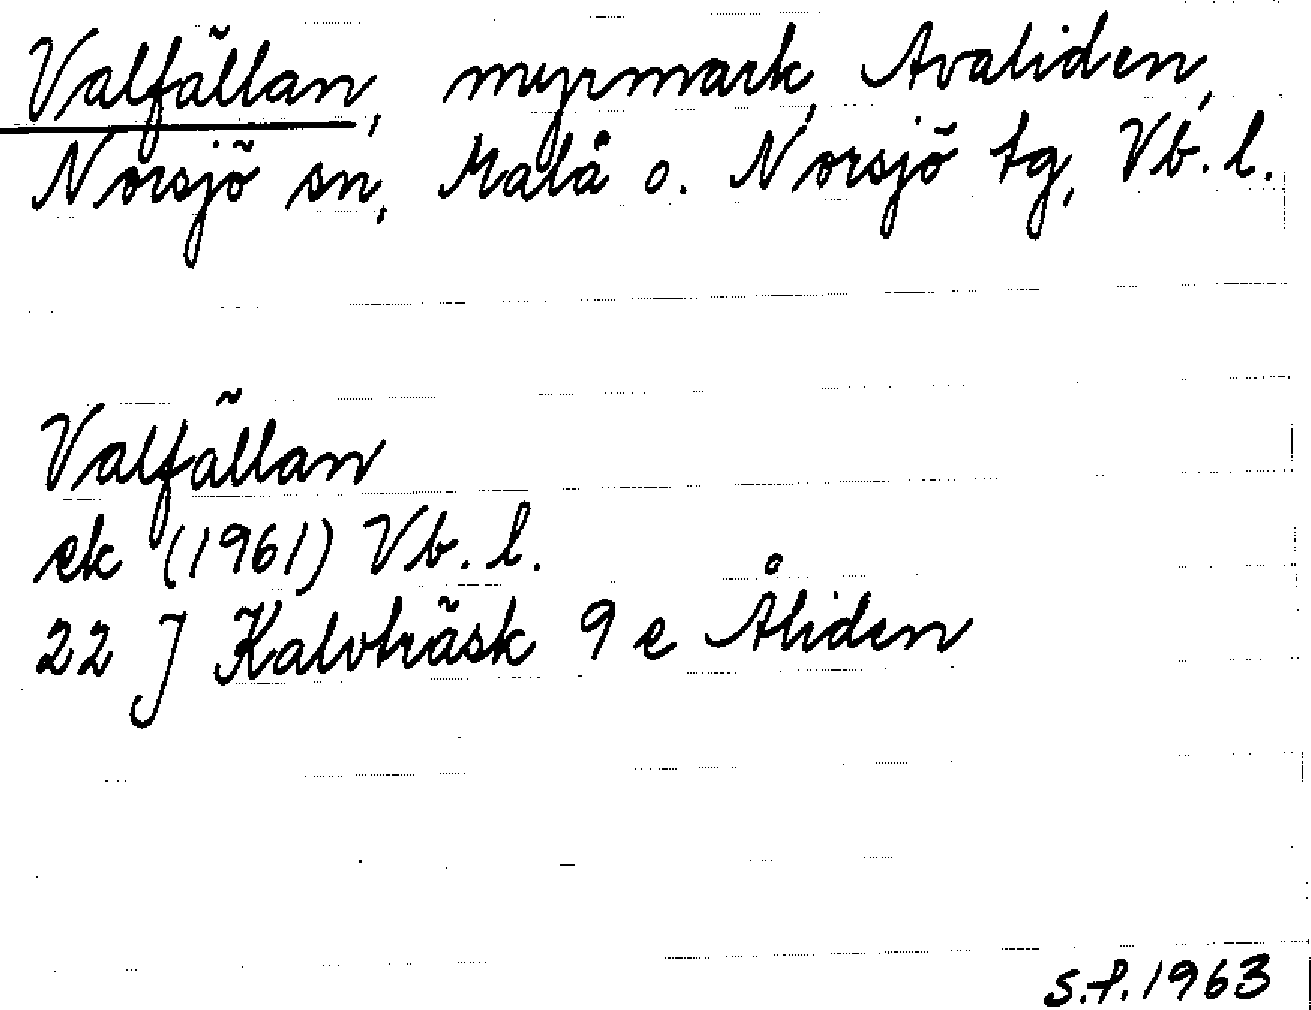 Valfällan, myrmark, Avaliden,
Norsjö sn, Malå o. Norsjö tg, Vb. l.
Valfällan
ek (1961) Vb. l.
22 J Kalvträsk 9 e Åliden
s.f. 1963